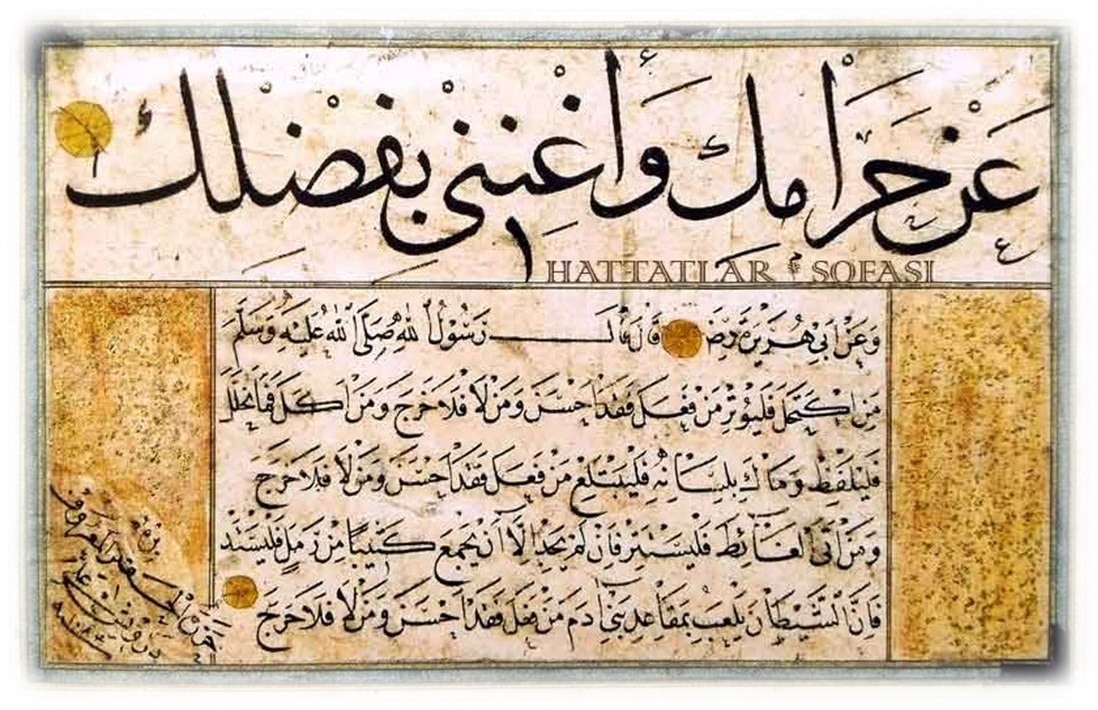 عَنْ حَرَامِكَ وَأَغْنِنِي بِفَضْلِكَ
HATTATLAR SOFASI
وَعَنْ اَبِي هُرَيْرَةَ رَضِ قَالَ قَالَ رَسُولُ اللهِ صَلَّى اللهُ عَلَيْهِ وَسَلَّمَ
مَنِ اكْتَحَلَ فَلْيُؤْتِرْ مَنْ فَعَلَ فَقَدْ اَحْسَنَ وَمَنْ لَا فَلَا حَرَجَ وَمَنْ اَكَلَ فَمَا تَخَلَّلَ
فَلْيَلْفَظْ وَمَا لَاكَ بِلِسَانِهِ فَلْيَبْتَلِعْ مَنْ فَعَلَ فَقَدْ اَحْسَنَ وَمَنْ لَا فَلَا حَرَجَ
وَمَنْ اَتَى الْغَائِطَ فَلْيَسْتَتِرْ فَاِنْ لَمْ يَجِدْ اِلَّا اَنْ يَجْمَعَ كَثِيبًا مِنْ رَمْلٍ فَلْيَسْتَنِدْ
فَاِنَّ الشَّيْطَانَ يَلْعَبُ بِمَقَاعِدِ بَنِي اٰدَمَ مَنْ فَعَلَ فَقَدْ اَحْسَنَ وَمَنْ لَا فَلَا حَرَجَ